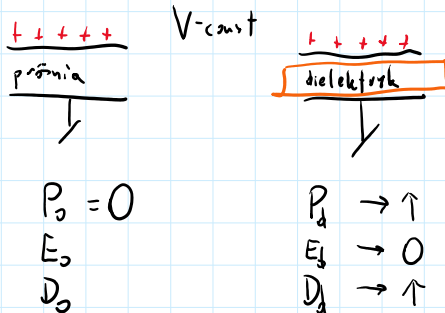 V-const
+ + + + +
+ + + + +
próżnia
dielektryk
P₀ = 0
P_d → ↑
E₀
E_d → 0
D₀
D_d → ↑